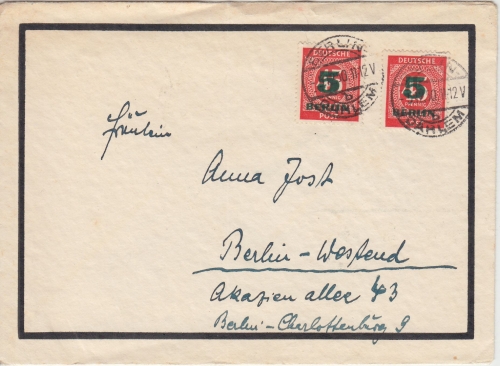 BERLIN-
DAHLEM
DEUTSCHE
5
BERLIN
POST
DEUTSCHE
5
BERLIN
Fräulein
Anna Jost
Berlin-Westend
Akazien allee 43
Berlin-Charlottenburg 9